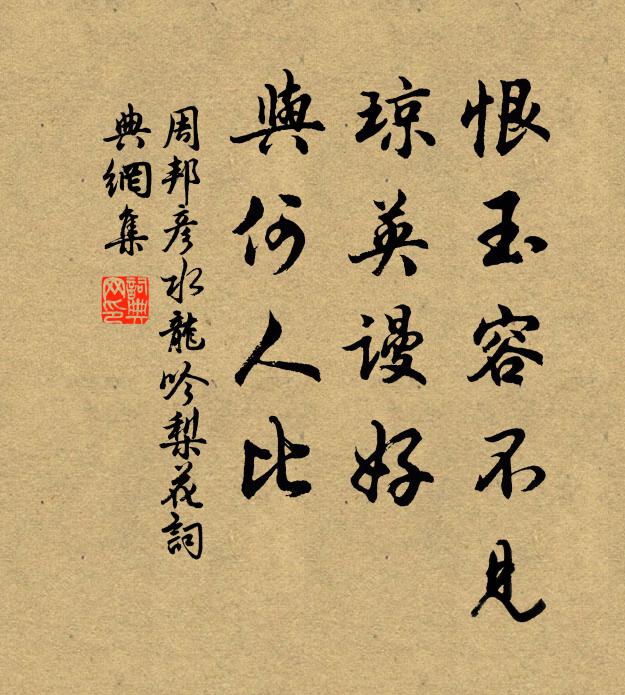 恨玉容不見
琼英謾好
與何人比
周邦彥水龍吟梨花詞
典網集
詞典
网印